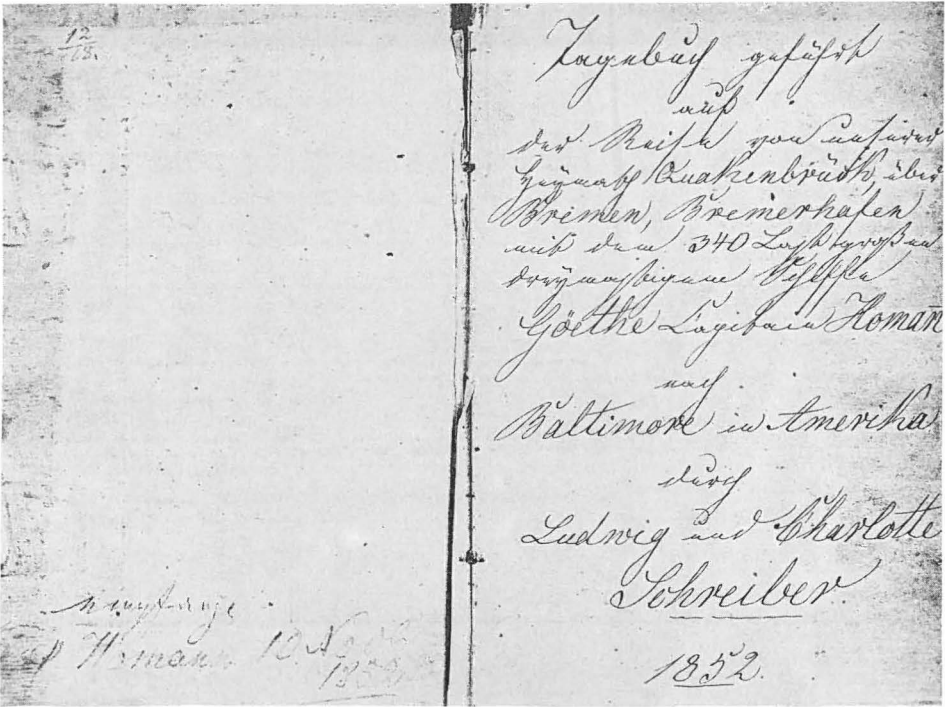 12
18
Homann 10
Tagebuch geführt
auf
der Reise von unserer
Heymath Quakenbrück, über
Bremen, Bremerhafen
mit dem 340 Last großen
dreymastigem Schiffe
Göethe Capitain Homan̄
nach
Baltimore in Amerika
durch
Ludwig und Charlotte
Schreiber.
1852.